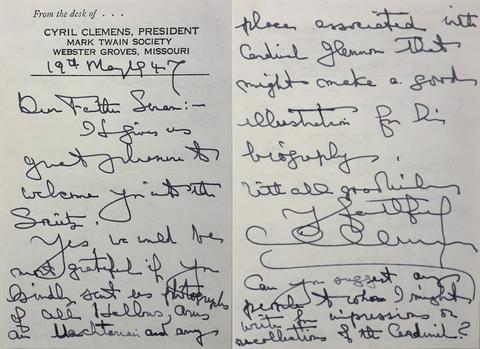 From the desk of . . .
CYRIL CLEMENS, PRESIDENT
MARK TWAIN SOCIETY
WEBSTER GROVES, MISSOURI
19th May 1947
Dear Father :-
It gives us
great pleasure to
welcome you into the
Society.
Yes, we would be
most grateful if you
kindly sent us photographs
of all Hallows, arms
an and any
places associated with
Cardinal Glennon that
might make a good
illustration for his
biography.
With all good wishes
faithfully
C Clemens
Can you suggest any
people to whom I might
write for impressions or
recollections of the Cardinal?